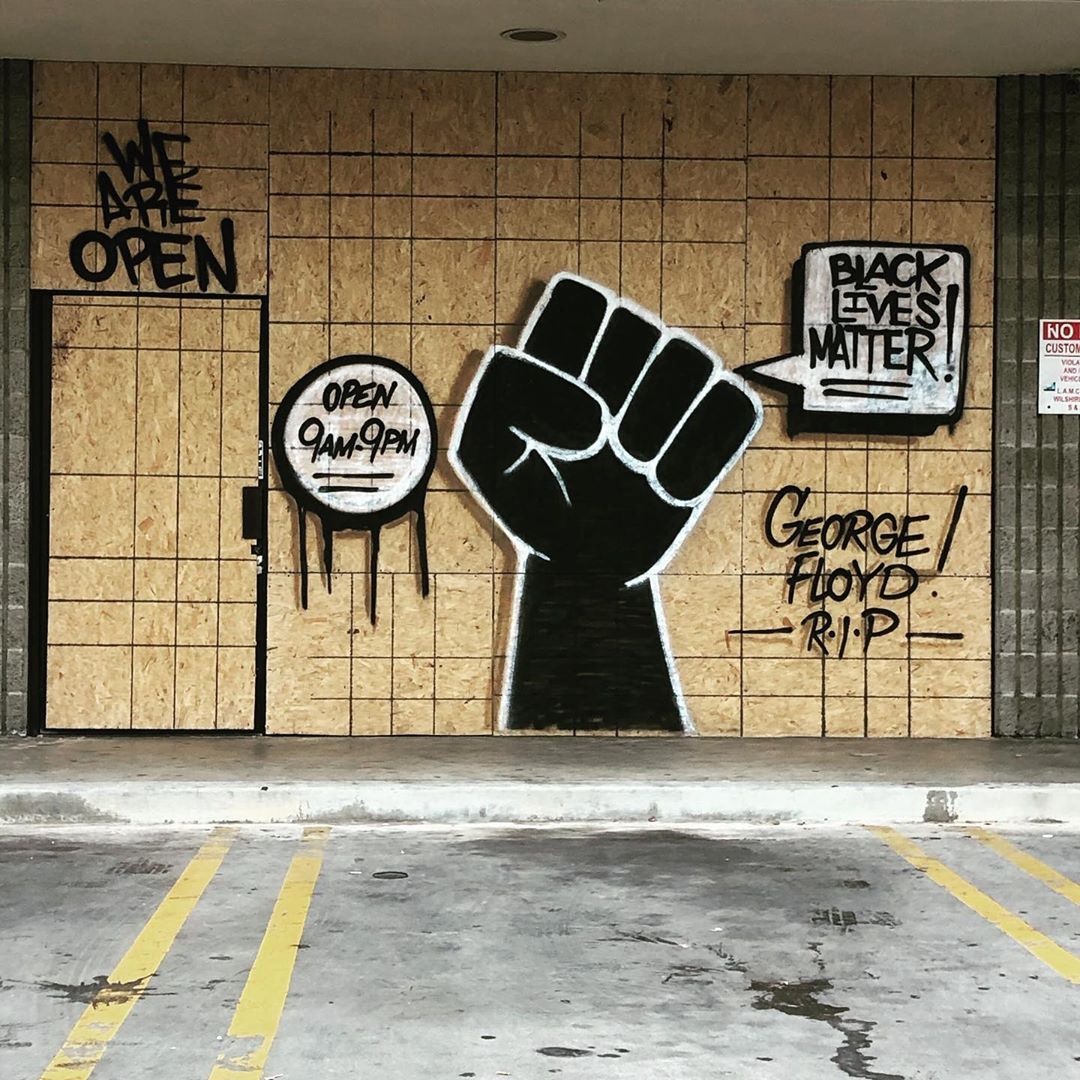 WE
ARE
OPEN
OPEN
9AM-9PM
BLACK
LIVES
MATTER!
GEORGE
FLOYD!
R.I.P
NO
CUSTOM
VIOLA
AND
VEHIC
L.A.M.C
WILSHIR